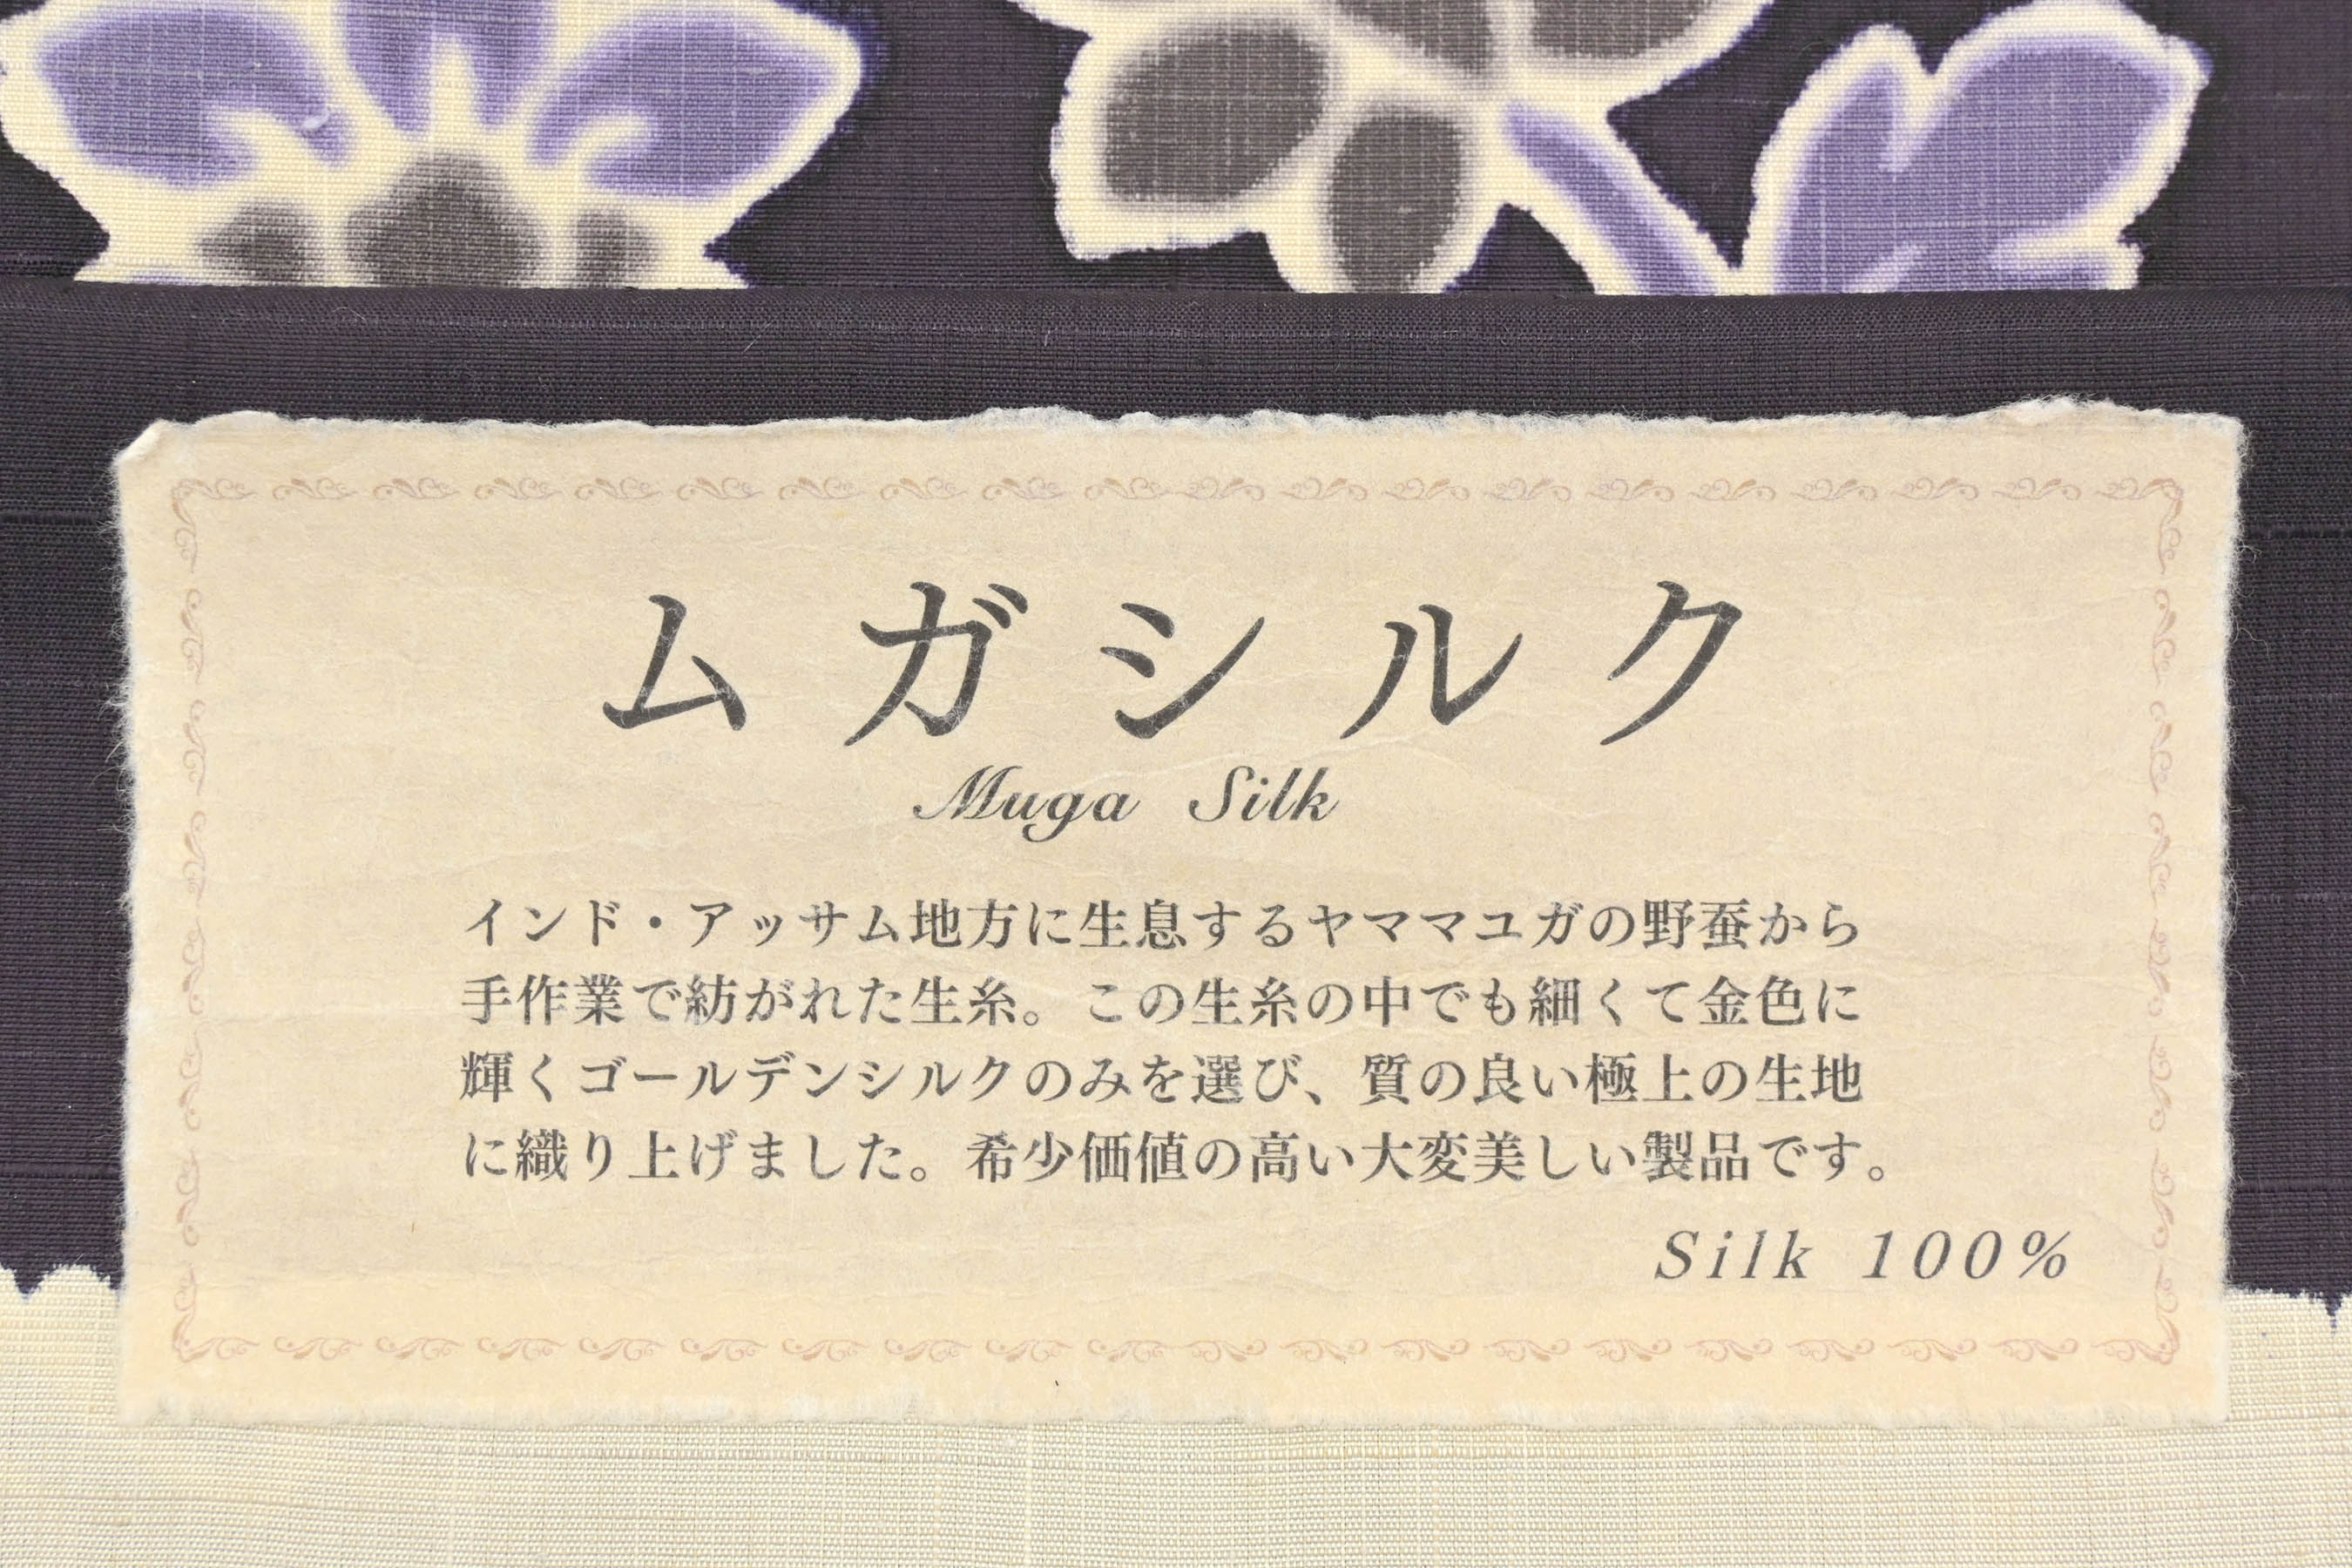 ムガシルク
Muga Silk
インド・アッサム地方に生息するヤママユガの野蚕から
手作業で紡がれた生糸。この生糸の中でも細くて金色に
輝くゴールデンシルクのみを選び、質の良い極上の生地
に織り上げました。希少価値の高い大変美しい製品です。
Silk 100%